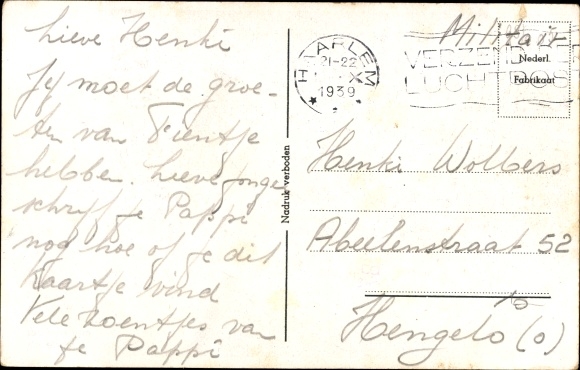 Lieve Henki
Jy moet de groe-
ten van Tientje
hebben. Lieve jonge
schryf je Pappi
nog hoe of je dit
kaartje vind
Vele zoentjes van
je Pappi
Nadruk verboden
Militair
HAARLEM
21-22
X
1939
VERZENDT PER
LUCHTPOST
Nederl.
Fabrikaat
Henki Wolbers
Abeelenstraat 52
Hengelo (o)